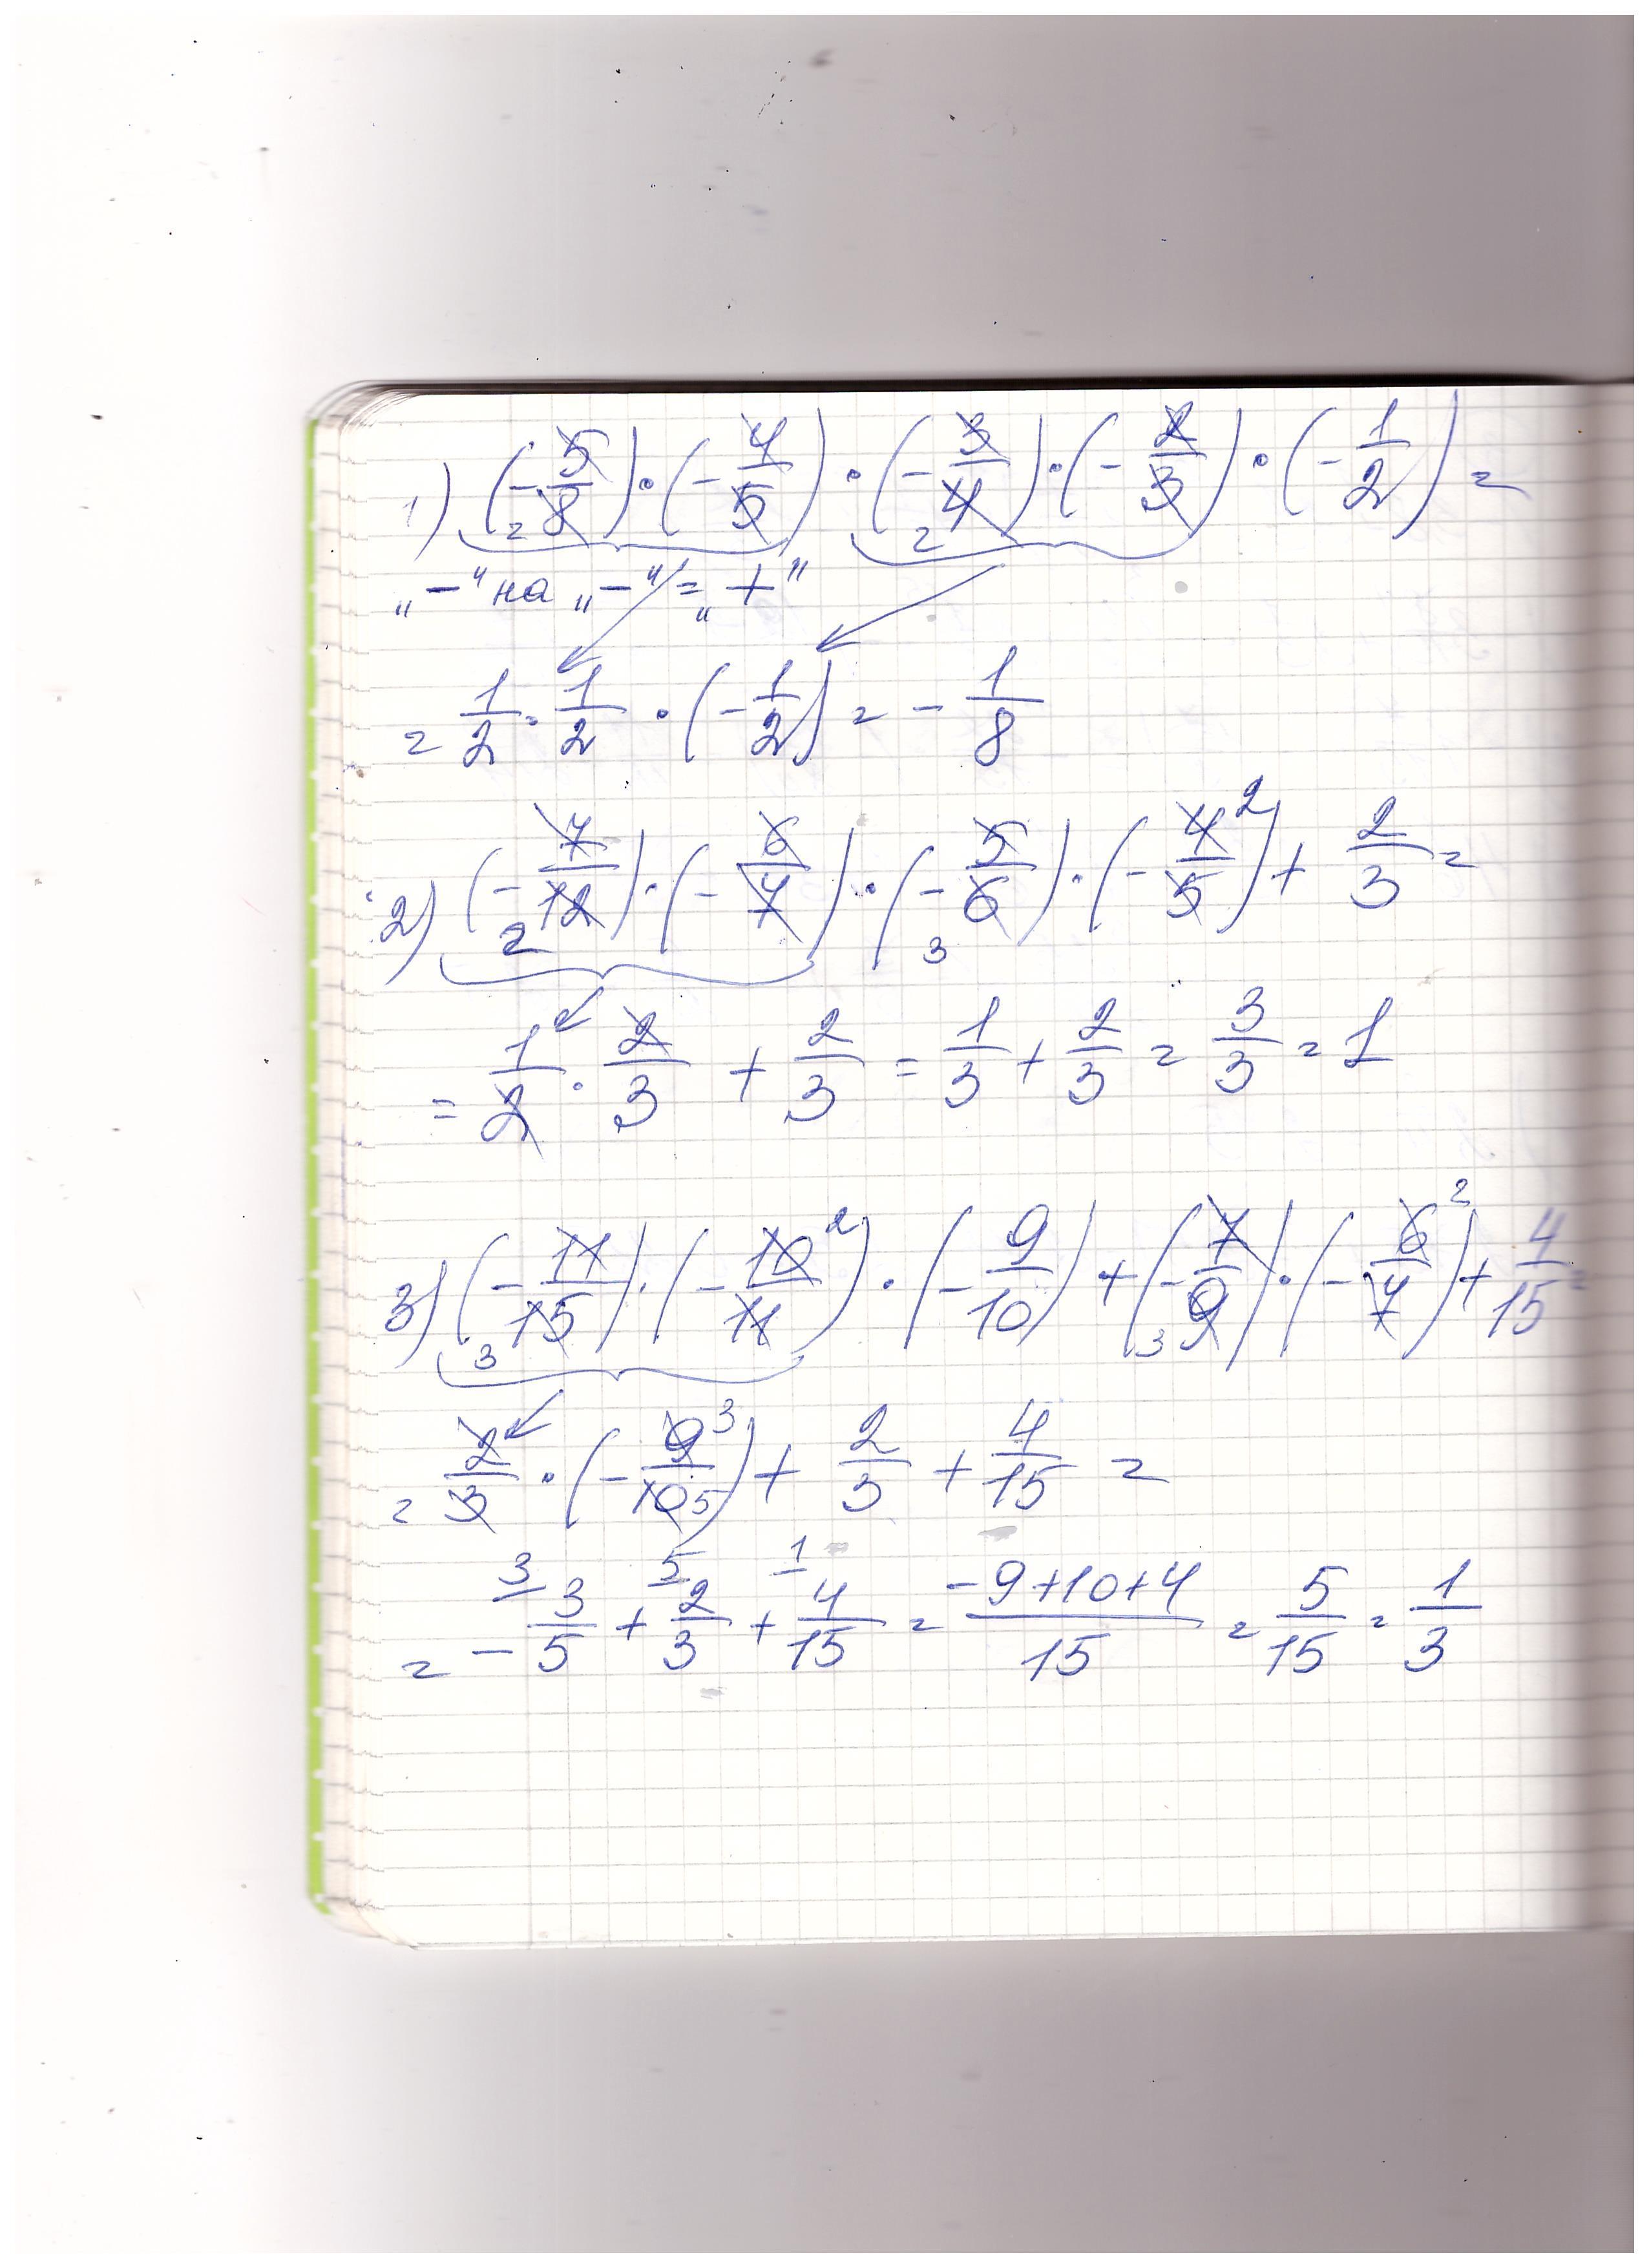 1) (-5/8)·(-4/5)·(-3/4)·(-2/3)·(-1/2)=
2 2
„-" на „-"=„+"
=1/2·1/2·(-1/2)=-1/8
2) (-7/12)·(-6/7)·(-5/6)·(-4/5)+2/3=
2 3 2
=1/2·2/3+2/3=1/3+2/3=3/3=1
3) (-11/15)·(-10/11)·(-9/10)+(-7/9)·(-6/7)+4/15=
3 2 3 2
=2/3·(-9/10)+2/3+4/15=
3 5
3 5 1
=-3/5+2/3+4/15=(-9+10+4)/15=5/15=1/3